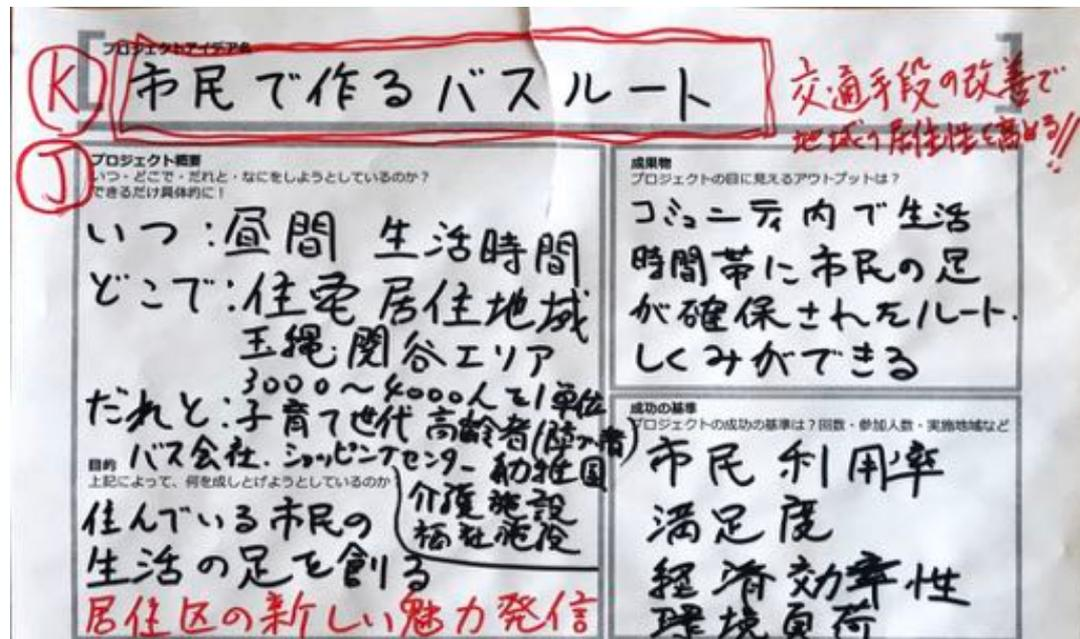 K
プロジェクトアイデア名
市民で作るバスルート
交通手段の改善で
地域の居住性を高める!!
J
プロジェクト概要
いつ・どこで・だれと・なにをしようとしているのか?
できるだけ具体的に!
いつ:昼間 生活時間
どこで:住宅 居住地域
玉縄・関谷エリア
3000〜4000人を1単位
だれと:子育て世代 高齢者(障がい者)
バス会社.ショッピングセンター 幼稚園
介護施設
福祉施設
目的
上記によって、何を成しとげようとしているのか
住んでいる市民の
生活の足を創る
居住区の新しい魅力発信
成果物
プロジェクトの目に見えるアウトプットは?
コミュニティ内で生活
時間帯に市民の足
が確保されたルート.
しくみができる
成功の基準
プロジェクトの成功の基準は?回数・参加人数・実施地域など
市民利用率
満足度
経済効率性
環境負荷